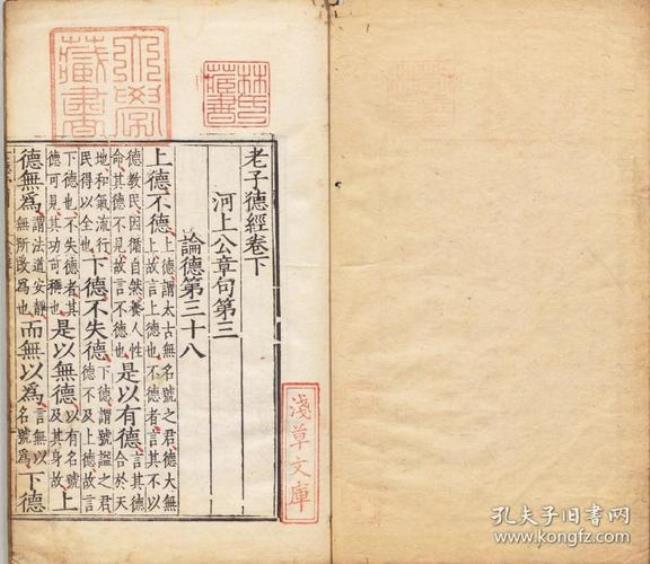 大學
藏書
林氏
藏書
老子德經卷下
河上公章句第三
論德第三十八
上德不德上德謂太古無名號之君德大無上故言上德也不德者言其不以
德教民因循自然養人性命其德不見故言不德也是以有德言其德合於天
地和氣流行民得以全也下德不失德下德謂號謚之君德不及上德故言
下德也不失德者其德可見其功可稱也是以無德以有名號及其身故上
德無爲謂法道安靜無所改爲也而無以爲言無以名號爲下德
淺草文庫
孔夫子旧书网
www.kongfz.com